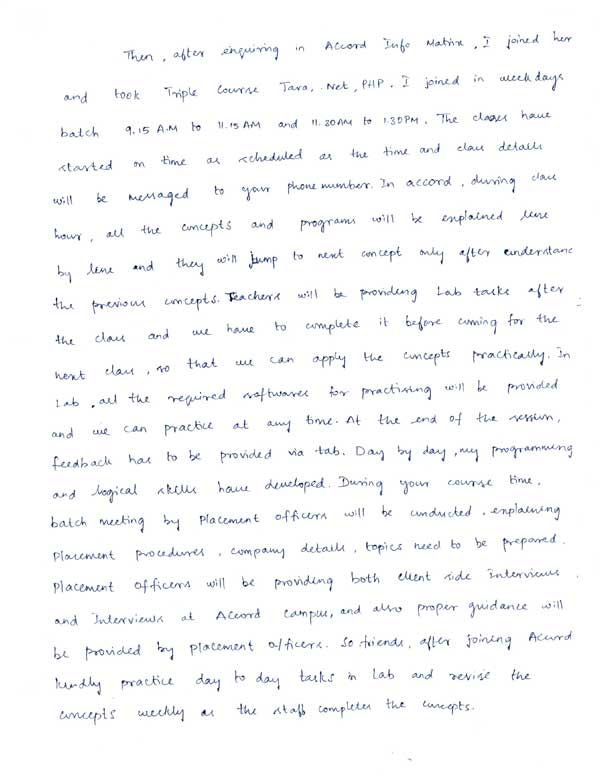 Then, after enquiring in Accord Info Matrix, I joined her
and took Triple Course Java, .Net, PHP. I joined in weekdays
batch 9.15 A.M to 11.15 AM and 11.30AM to 1.30PM. The classes have
started on time as scheduled as the time and class details
will be messaged to your phone number. In accord, during class
hour, all the concepts and programs will be explained line
by line and they will jump to next concept only after understanc
the previous concepts. Teachers will be providing Lab tasks after
the class and we have to complete it before coming for the
next class, so that we can apply the concepts practically. In
Lab, all the required softwares for practising will be provided
and we can practice at any time. At the end of the session,
feedback has to be provided via tab. Day by day, my programming
and logical skills have developed. During your course time,
batch meeting by Placement officers will be conducted, explaining
Placement procedures, company details, topics need to be prepared.
Placement officers will be providing both client side Interviews
and Interviews at Accord campus, and also proper guidance will
be provided by placement officers. So friends, after joining Accord
kindly practice day to day tasks in Lab and revise the
concepts weekly as the staff completes the concepts.